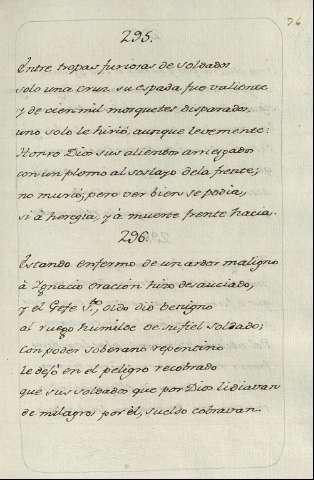 76
295.
Entre tropas furiosas de soldados
solo una Cruz su espada fue valiente
y de cien mil mosquetes disparados,
uno solo le hirió, aunque levemente:
Honro Dios sus alientos arriesgados
con un plomo al soslayo dela frente;
no murió; pero ver bien se podia,
si á heregia, y á muerte frente hacia.
296.
Estando enfermo de un ardor maligno
á Ignacio oración hizo desauciado;
y el Gefe Sto, oido dió benigno
al ruego humilde de su fiel soldado;
Con poder soberano repentino
le dejó en el peligro recobrado
que sus soldados que por Dios lidiavan
de milagros por él, sueldo cobravan.